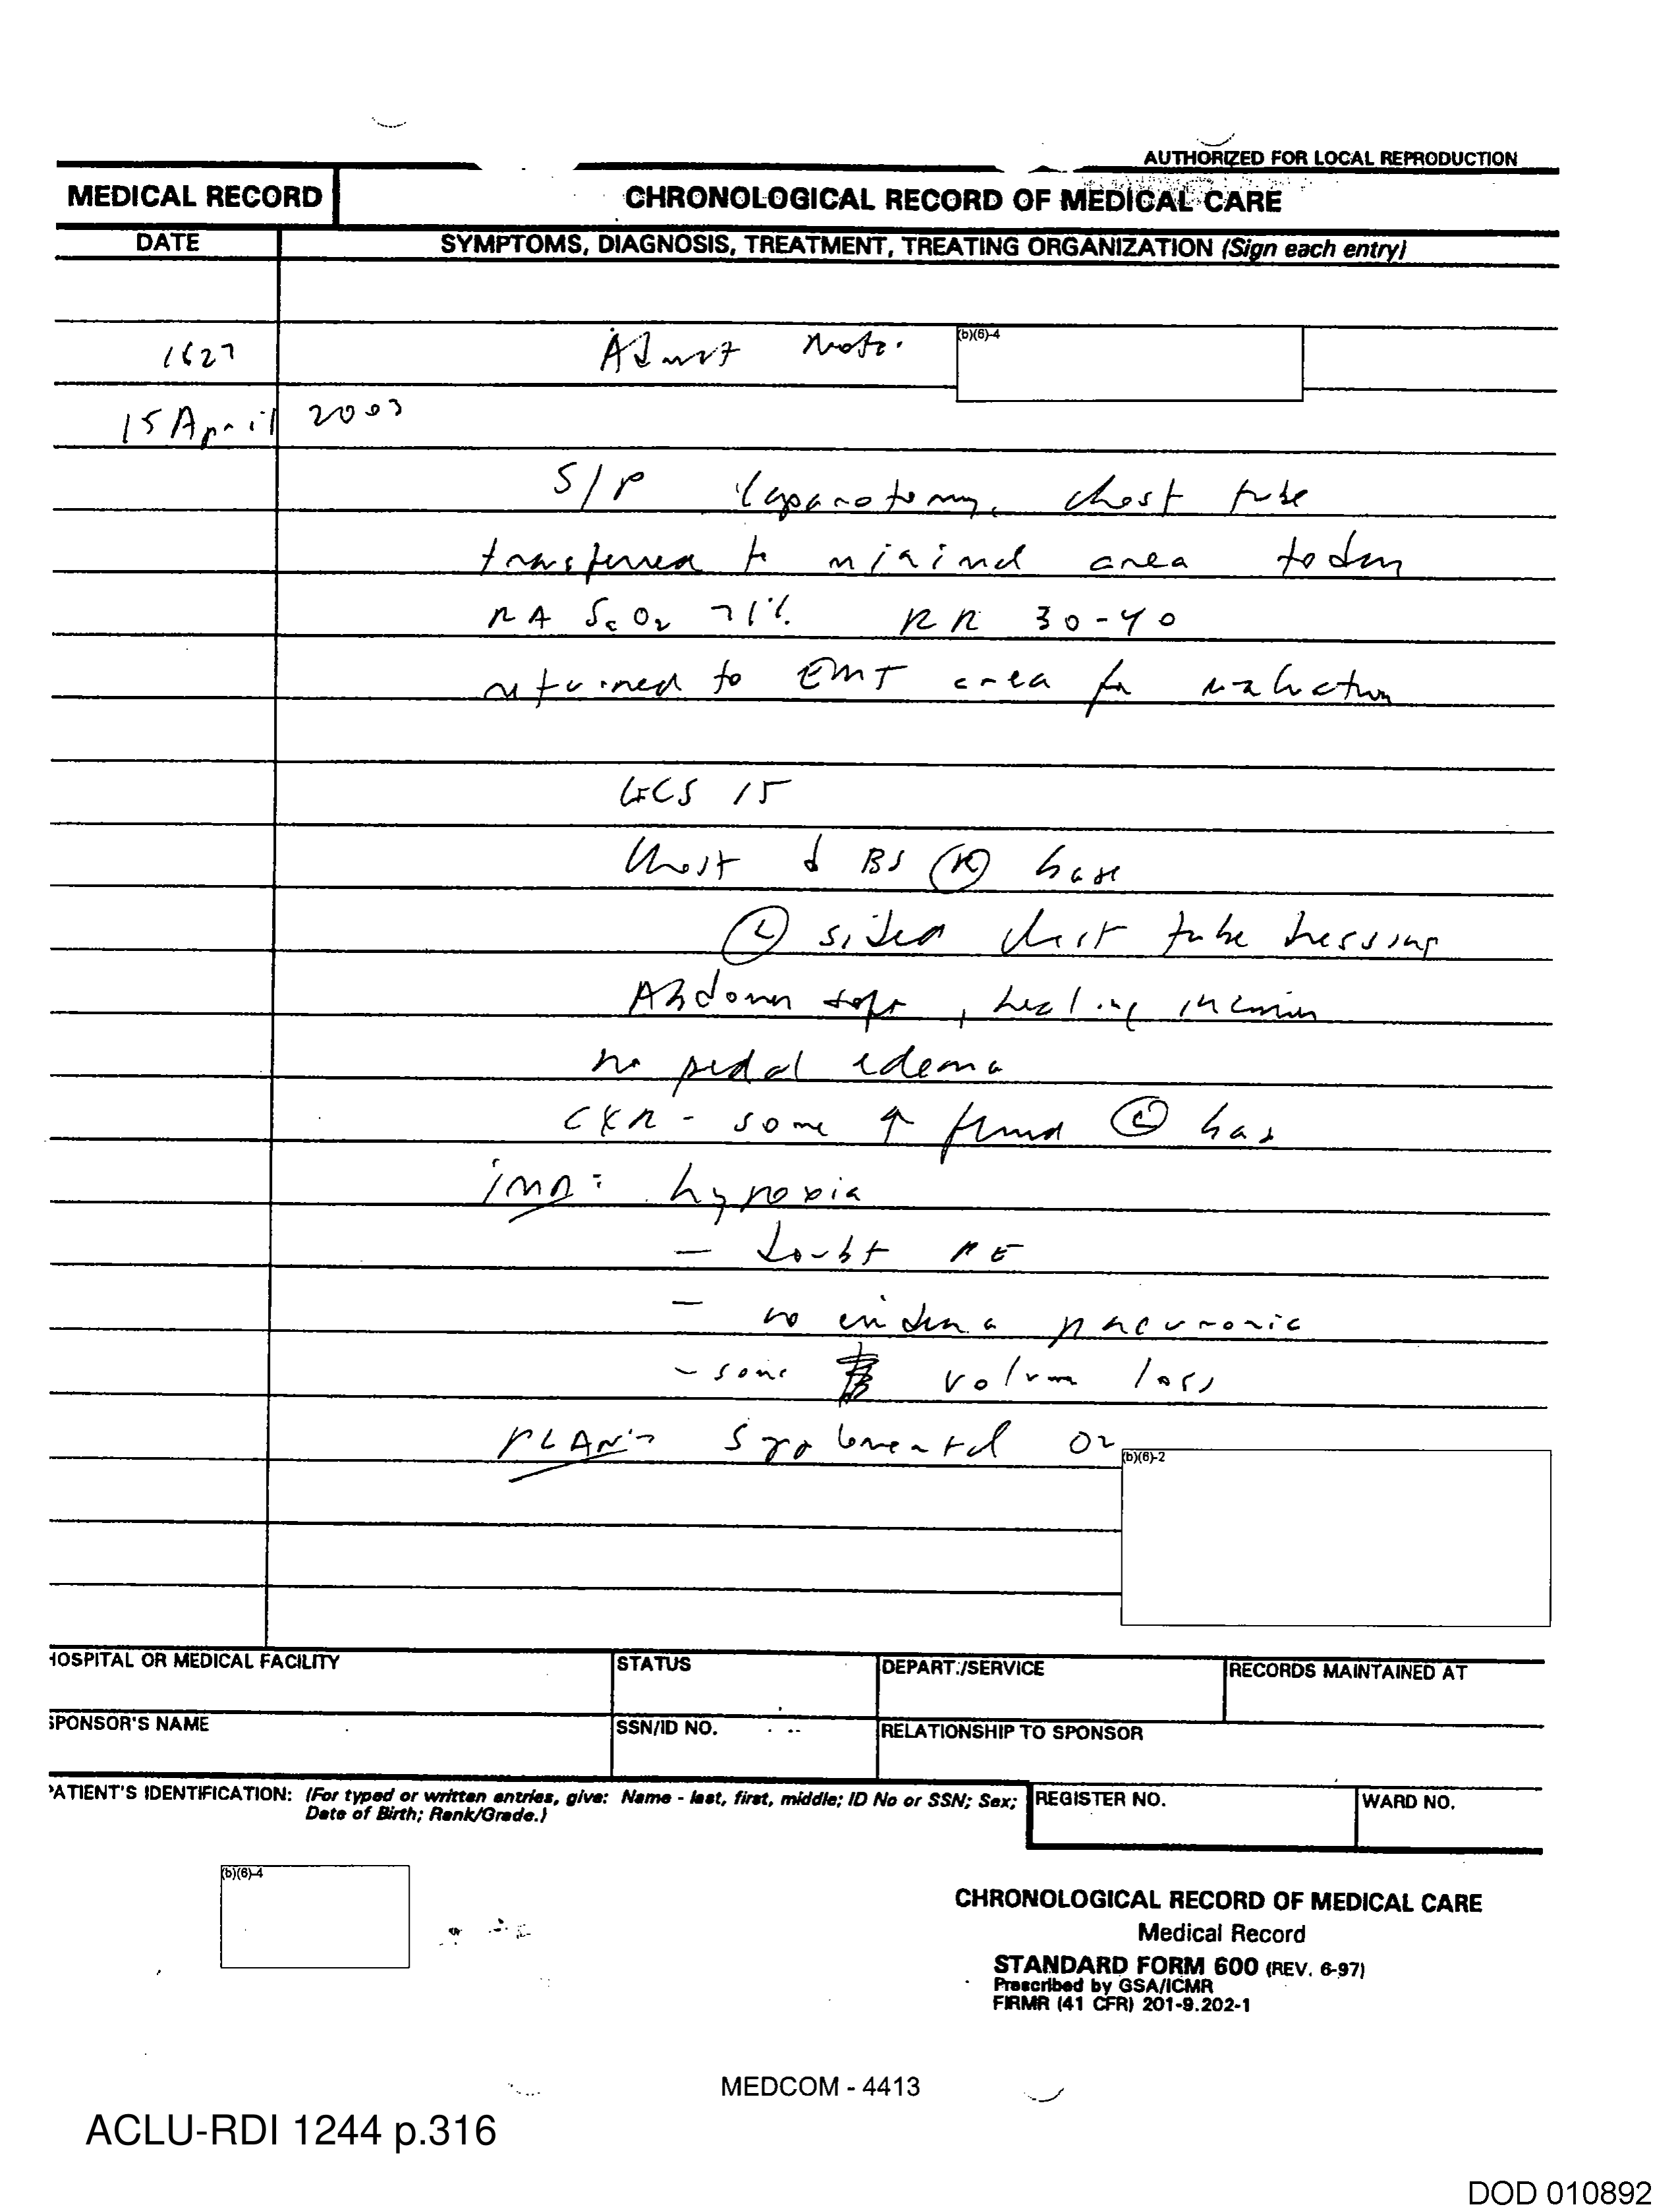 AUTHORIZED FOR LOCAL REPRODUCTION
MEDICAL RECORD CHRONOLOGICAL RECORD OF MEDICAL CARE
DATE SYMPTOMS, DIAGNOSIS, TREATMENT, TREATING ORGANIZATION (Sign each entry)
1627 Admit Note. (b)(6)-4
15 April 2003
S/P laparotomy, chest tube
transferred to minimal area today
RA SaO2 71% RR 30-40
returned to EMT area for evaluation
GCS 15
Chest ↓ BS (R) base
(L) sided chest tube dressing
Abdomen soft, healing incision
no pedal edema
CXR - some ↑ fluid base
imp: hypoxia
- doubt PE
- no evidence pneumonia
- some volume loss
PLAN: Supplemental O2
(b)(6)-2
HOSPITAL OR MEDICAL FACILITY STATUS DEPART./SERVICE RECORDS MAINTAINED AT
SPONSOR'S NAME SSN/ID NO. RELATIONSHIP TO SPONSOR
PATIENT'S IDENTIFICATION: (For typed or written entries, give: Name - last, first, middle; ID No or SSN; Sex; REGISTER NO. WARD NO.
Date of Birth; Rank/Grade.)
(b)(6)-4
CHRONOLOGICAL RECORD OF MEDICAL CARE
Medical Record
STANDARD FORM 600 (REV. 6-97)
Prescribed by GSA/ICMR
FIRMR (41 CFR) 201-9.202-1
MEDCOM - 4413
ACLU-RDI 1244 p.316
DOD 010892